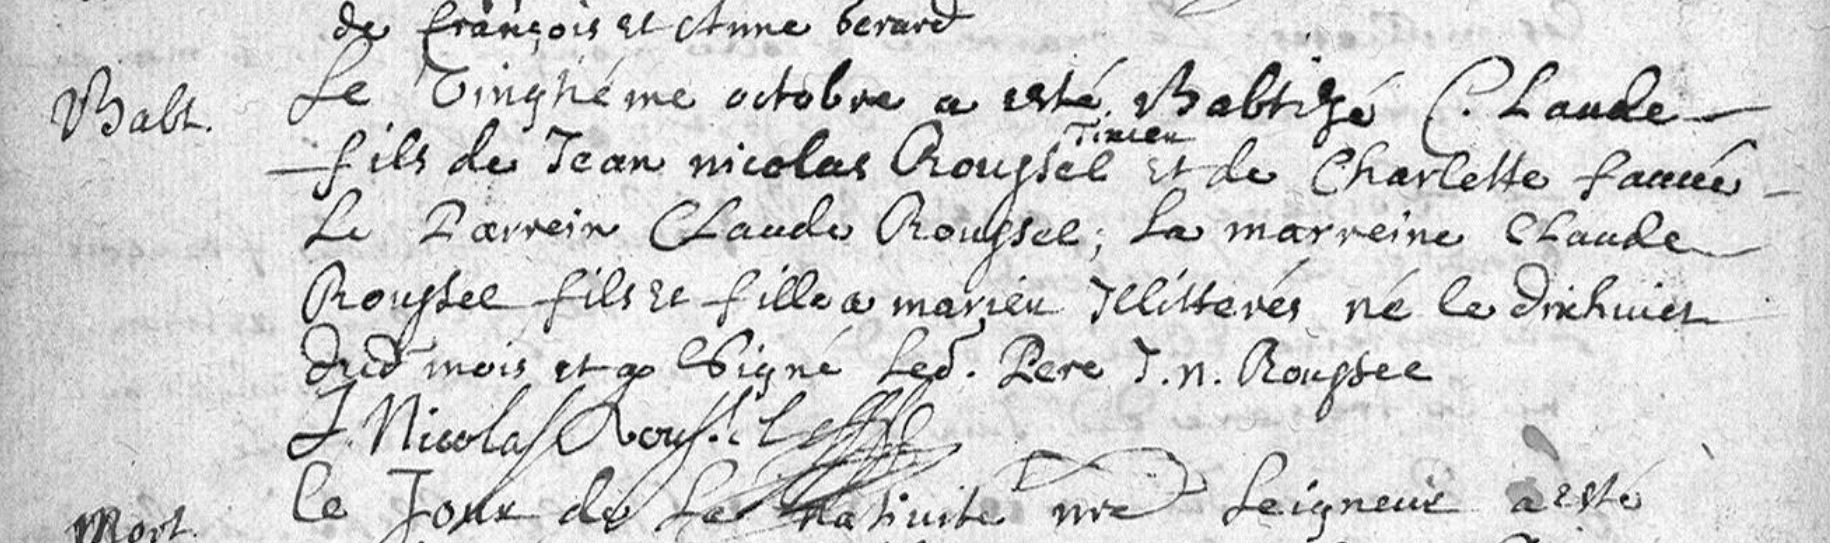 de françois et Anne berard
Babt.
Le Vingtiéme octobre a esté Babtizé Claude
fils de Jean nicolas Rousſel et de Charlette
Le Parrein Claude Rousſel; La marreine Claude
Rousſel fils et fille a marier Illitterés né le dixhuict
dud mois et a Signé Led. Pere J. n. Rousſel
J. Nicolas Rousſel
Mort.
le Jour de La nativite nre Seigneur a esté